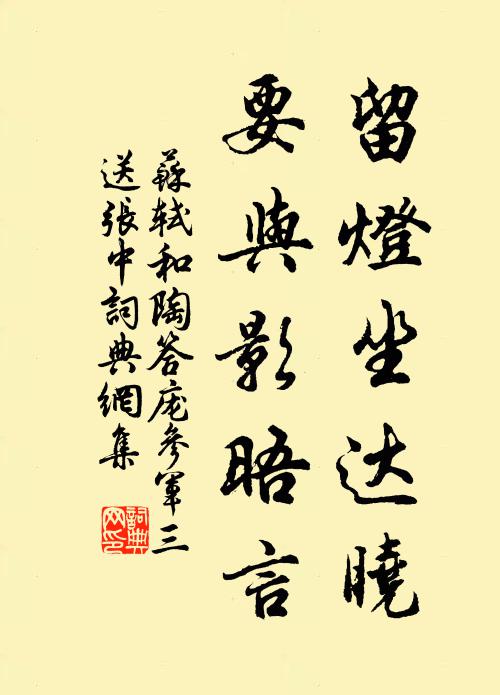 留燈坐达曉
要與影晤言
蘇軾和陶答庞參軍三
送張中詞典網集
詞典网印